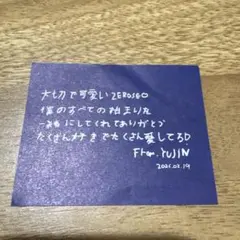 大切で可愛い ZEROSE♡
僕のすべての始まりを
一緒にしてくれてありがとう
たくさん好きでたくさん愛してる♡
From. YUJIN